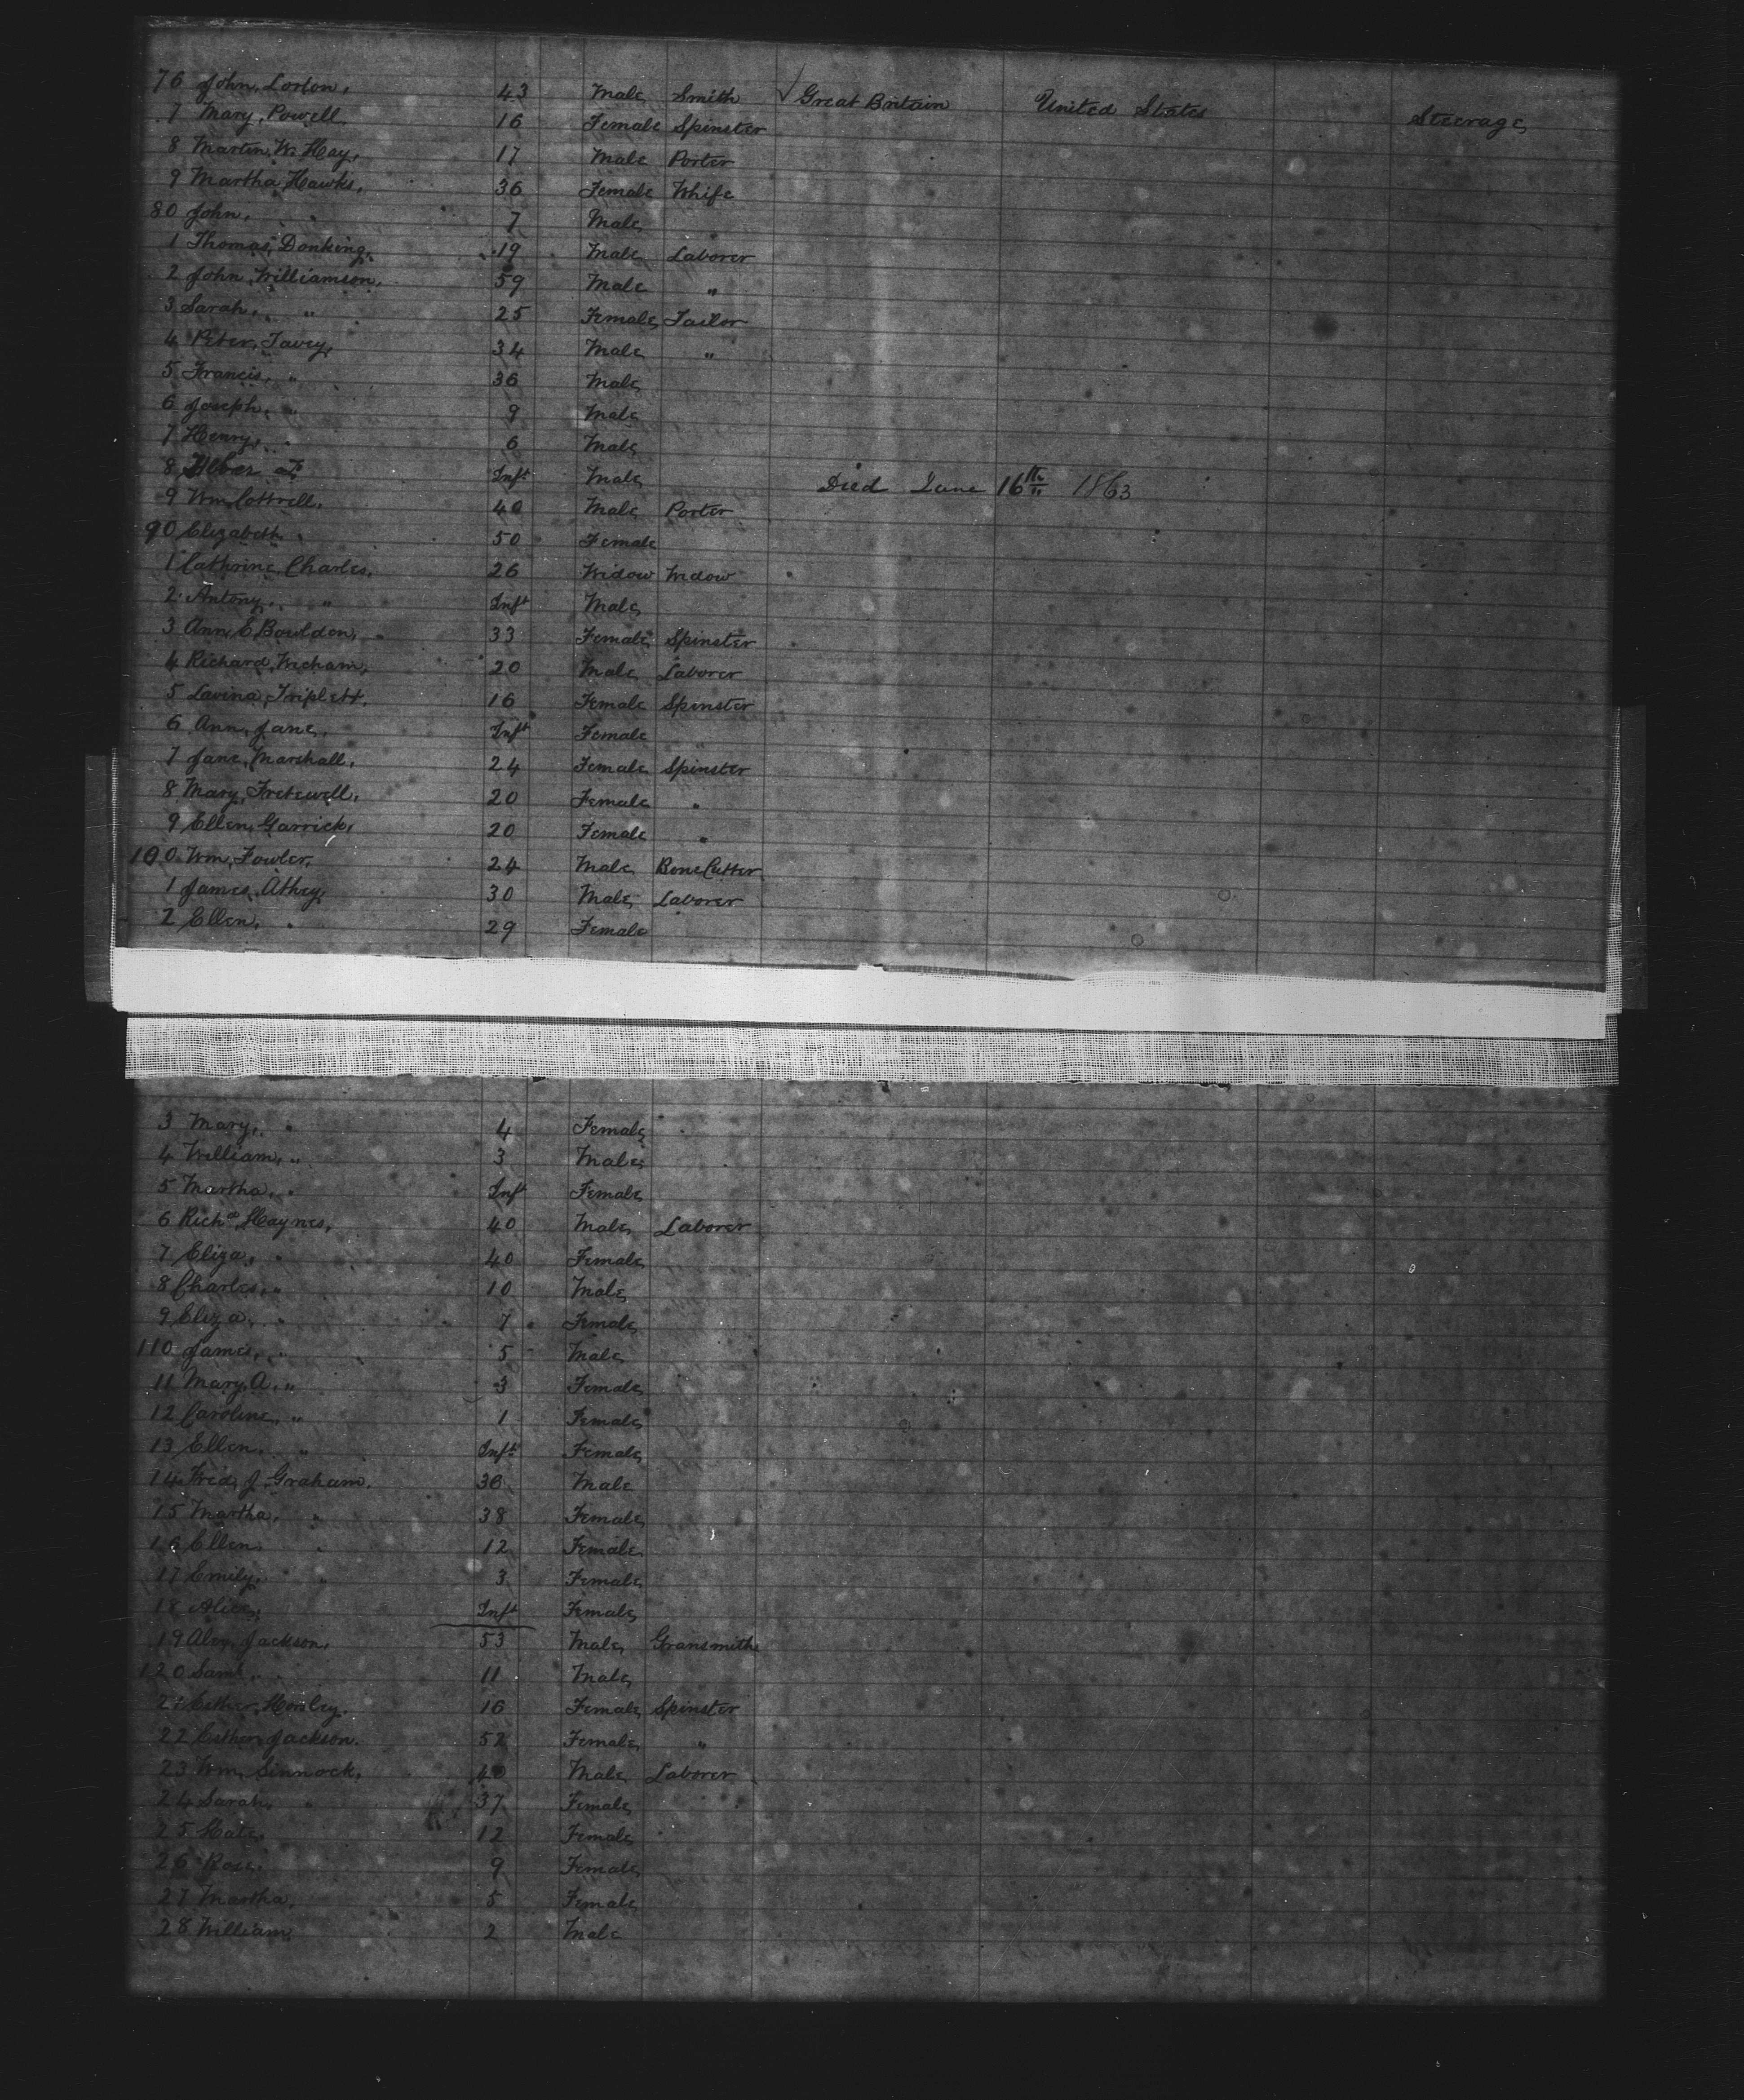 76 John, Lorton, 43 Male Smith √ Great Britain United States Steerage
7 Mary, Powell 16 Female Spinster
8 Martin, W. Hay, 17 Male Porter
9 Martha, Hawks, 36 Female Whife
80 John, " 7 Male
1 Thomas, Donking, 19 Male Laborer
2 John, Williamson, 59 Male "
3 Sarah, " 25 Female Tailor
4 Peter, Tavey, 34 Male "
5 Francis, " 36 Male
6 Joseph, " 9 Male
7 Henry, " 6 Male
8 Heber Inft Male Died June 16th 1863
9 Wm, Cottrell, 40 Male Porter
90 Elizabeth " 50 Female
1 Cathrine, Charles, 26 Widow Widow
2 Antony, " Inft Male
3 Ann, E, Bouldon, 33 Female Spinster
4 Richard, Wicham, 20 Male Laborer
5 Lavina, Triplett, 16 Female Spinster
6 Ann, Jane, Inft Female
7 Jane, Marshall, 24 Female Spinster
8 Mary, Fretewell, 20 Female "
9 Ellen, Garrick, 20 Female "
100 Wm, Fowler, 24 Male Bone Cutter
1 James, Athey, 30 Male Laborer
2 Ellen, " 29 Female
3 Mary, " 4 Female
4 William, " 3 Male
5 Martha, " Inft Female
6 Richd, Haynes, 40 Male Laborer
7 Eliza, " 40 Female
8 Charles, " 10 Male
9 Eliza, " 7 Female
110 James, " 5 Male
11 Mary, A, " 3 Female
12 Caroline, " 1 Female
13 Ellen, " Inft Female
14 Fred, J, Graham, 36 Male
15 Martha, " 38 Female
16 Ellen, " 12 Female
17 Emily, " 3 Female
18 Alice, Inft Female
19 Alex, Jackson, 53 Male Gransmith
120 Saml " 11 Male
21 Esther, Horsley, 16 Female Spinster
22 Esther, Jackson, 52 Female "
23 Wm, Sinnock, 40 Male Laborer
24 Sarah, " 37 Female
25 Kate, 12 Female
26 Rose, 9 Female
27 Martha, 5 Female
28 William, 2 Male